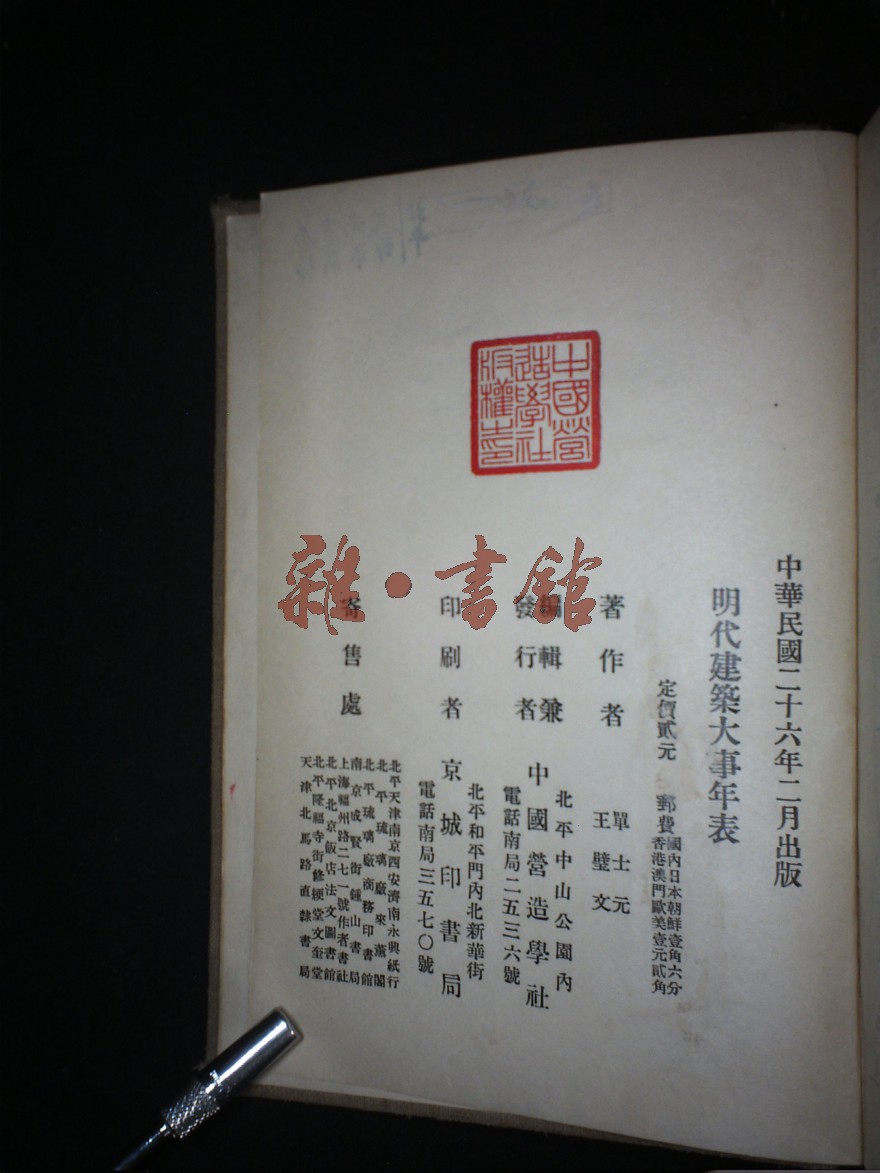 中華民國二十六年二月出版
明代建築大事年表
定價貳元 郵費
國內日本朝鮮壹角六分
香港澳門歐美壹元貳角
著作者
單士元
王璧文
編輯兼
發行者
北平中山公園內
中國營造學社
電話南局二五三六號
印刷者
北平和平門內北新華街
京城印書局
電話南局三五七〇號
寄售處
北平天津南京西安濟南永興紙行
北平琉璃廠來薰閣
北平琉璃廠商務印書館
南京成賢街鍾山書局
上海福州路二七一號作者書社
北平北京飯店法文圖書館
北平隆福寺街修綆堂文奎堂
天津北馬路直隸書局
中國營
造學社
版權之印
雜·書館